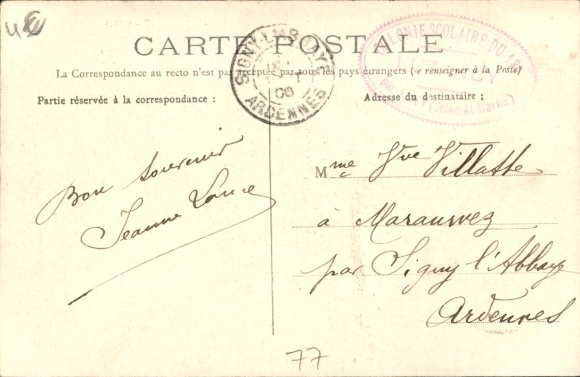 CARTE POSTALE
La Correspondance au recto n'est pas acceptée par tous les pays étrangers (se renseigner à la Poste)
Partie réservée à la correspondance :
Adresse du destinataire ;
COLONIE SCOLAIRE DU
(Seine et Marne)
SIGNY L'ABBAYE
08
ARDENNES
Bon souvenir
Jeanne
Mme Vve Villatte
à Marauwez
par Signy l'Abbaye
Ardennes
77